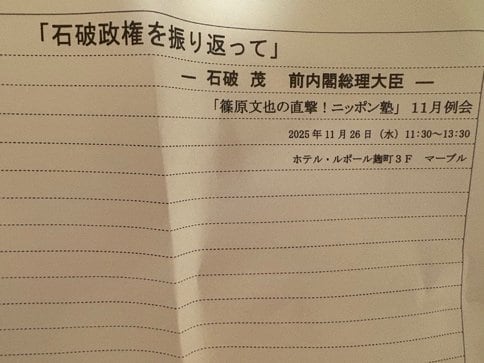 「石破政権を振り返って」
― 石破 茂 前内閣総理大臣 ―
「篠原文也の直撃！ニッポン塾」 11月例会
2025年11月26日（水）11:30～13:30
ホテル・ルポール麹町3F マーブル